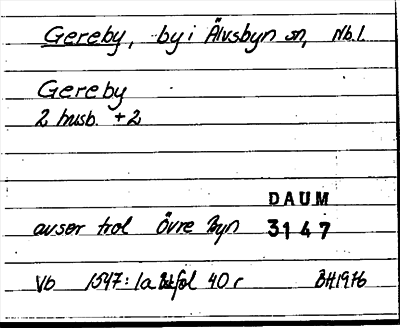 Gereby, by i Älvsbyn sn, Nb.l.
Gereby
2 husb. + 2
DAUM
avser trol Övre Byn 3147
Vb 1547: 1a fol 40 r BH1976